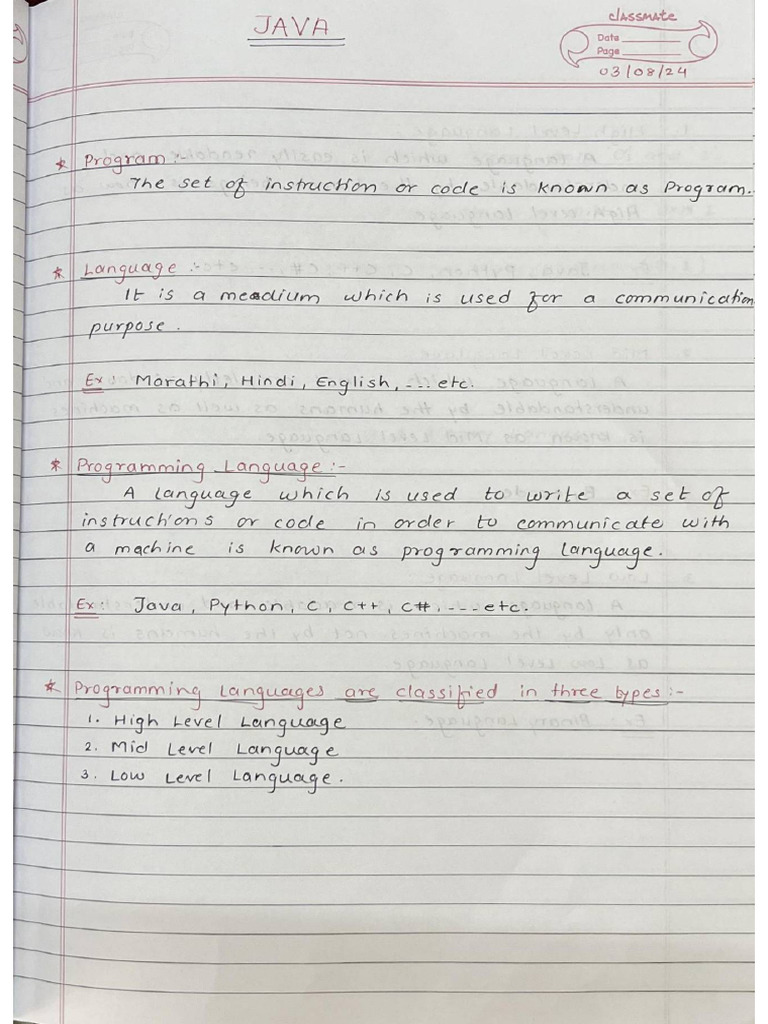 JAVA
classmate
Date
Page
03/08/24
* Program :-
The set of instruction or code is known as Program.
* Language :-
It is a meadium which is used for a communication
purpose.
Ex: Marathi, Hindi, English, ---etc.
* Programming Language :-
A language which is used to write a set of
instructions or code in order to communicate with
a machine is known as programming language.
Ex: Java, Python, C, C++, C#, ---etc.
* Programming languages are classified in three types :-
1. High Level Language
2. Mid Level Language
3. Low Level Language.